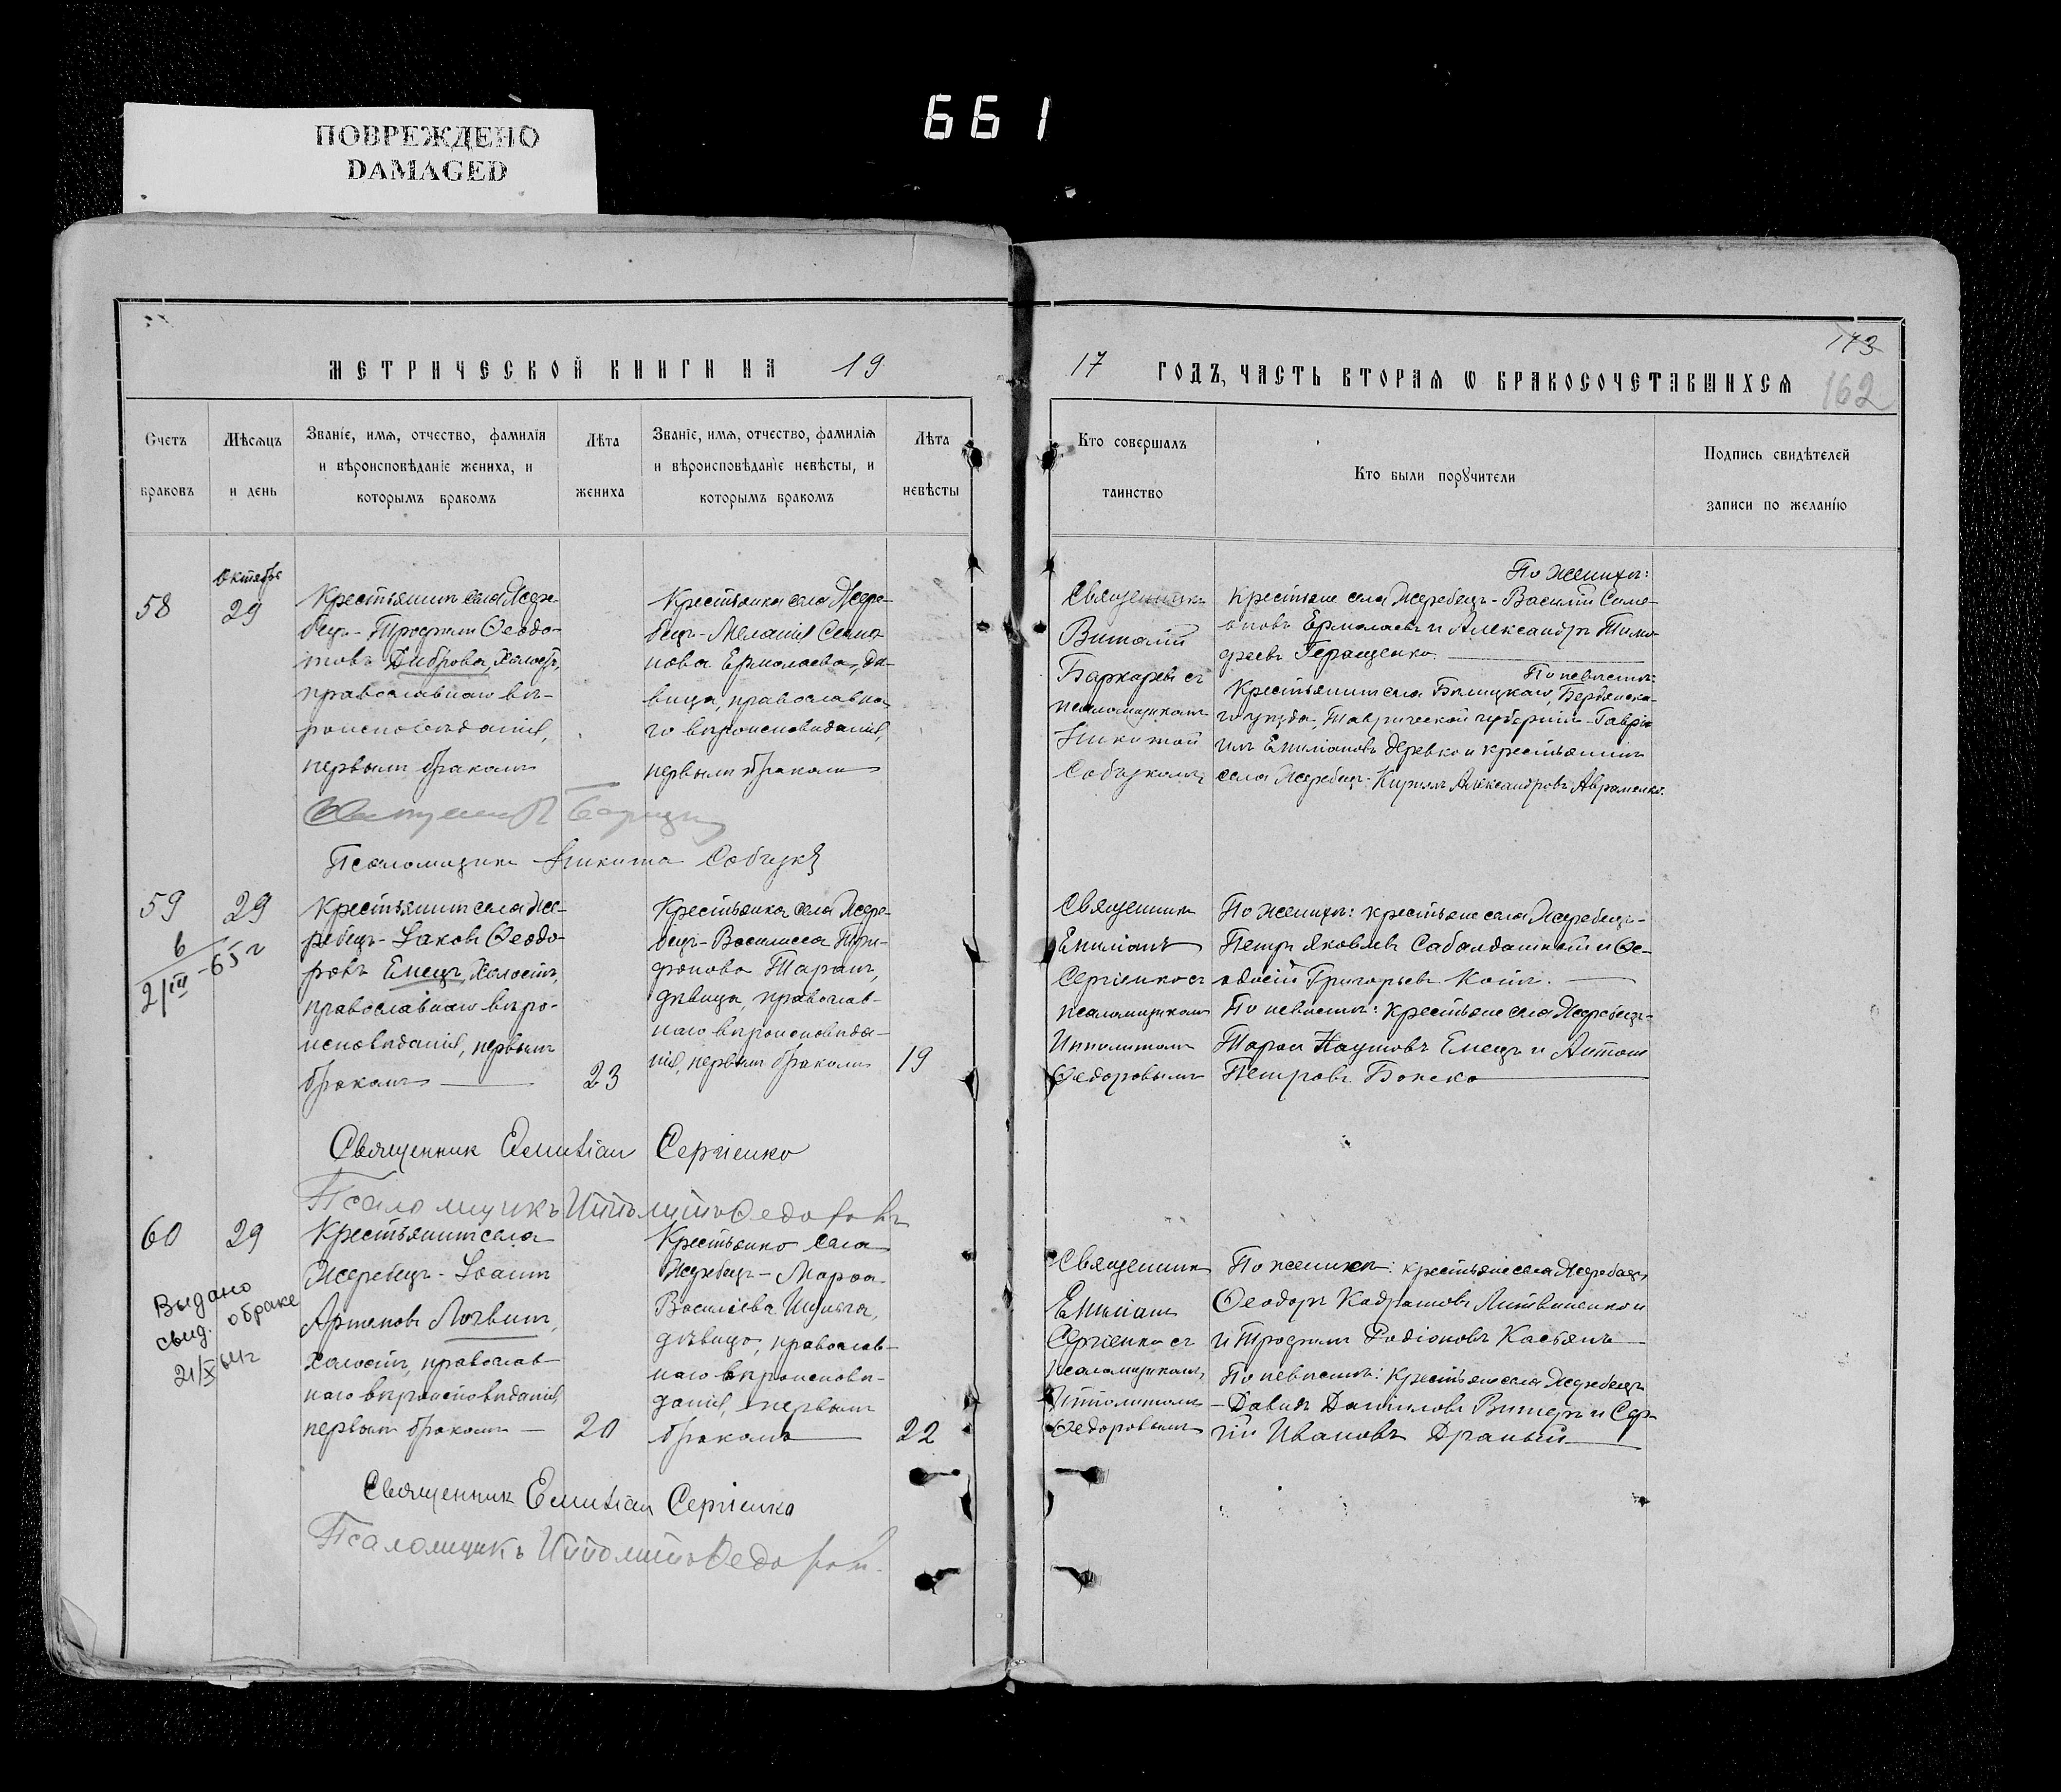 661
ПОВРЕЖДЕНО
DAMAGED
МЕТРИЧЕСКОЙ КНИГИ НА 19
17 ГОДЪ, ЧАСТЬ ВТОРАЯ Ѡ БРАКОСОЧЕТАВШИХСѦ
173
162
Счетъ браковъ
Мѣсѧцъ и день
Званіе, имѧ, отчество, фамилія
и вѣроисповѣданіе жениха, и
которымъ бракомъ
Лѣта жениха
Званіе, имѧ, отчество, фамилія
и вѣроисповѣданіе невѣсты, и
которымъ бракомъ
Лѣта невѣсты
Кто совершалъ
таинство
Кто были порꙋчители
Подпись свидѣтелей
записи по желанію
58
Октября
29
Крестьянинъ села Жере-
бецъ - Трофимъ Ѳеодо-
товъ Диброва, холостъ,
православнаго вѣ-
роисповѣданія,
первымъ бракомъ
Крестьянка села Жере-
бецъ - Меланія Семио-
нова Ермолаева, дѣ-
вица, православна-
го вѣроисповѣданія,
первымъ бракомъ
Священникъ
Виталій
Баркаревъ съ
псаломщикомъ
Никитой
Собуцкимъ
По женихѣ:
Крестьяне села Жеребецъ - Василій Симе-
оновъ Ермолаевъ и Александръ Тимо-
феевъ Геращенко.
По невѣстѣ:
Крестьянинъ села Бѣлицкаго, Бердянска-
го уѣзда, Таврической губерніи - Гаврі-
илъ Емиліановъ Деревко и крестьянинъ
села Жеребецъ - Кириллъ Александровъ Авраменко.
Псаломщикъ Никита Собуцкій
59
29
6
21/III - 65 г
Крестьянинъ села Же-
ребецъ - Іаковъ Ѳеодо-
ровъ Емецъ, холостъ,
православнаго вѣро-
исповѣданія, первымъ
бракомъ
23
Крестьянка села Жере-
бецъ - Василисса Три-
фонова Таранъ,
дѣвица, православ-
наго вѣроисповѣда-
нія, первымъ бракомъ
19
Священникъ
Емиліанъ
Сергіенко съ
псаломщикомъ
Ипполитомъ
Ѳедоровымъ
По женихѣ: крестьяне села Жеребецъ -
Петръ Яковлевъ Сабалдашкій и Ѳе-
одосій Григорьевъ Котъ.
По невѣстѣ: крестьяне села Жеребецъ -
Тарас Наумовъ Емецъ и Антонъ
Петровъ Бонско
Священник Емиліан Сергіенко
Псаломщикъ Ипполитъ Ѳедоровъ
60
29
Выдано
свид. о браке
21/X 64 г
Крестьянинъ села
Жеребецъ - Іоаннъ
Артемовъ Логвинъ,
холостъ, православ-
наго вѣроисповѣданія,
первымъ бракомъ
20
Крестьянка села
Жеребецъ - Марѳа
Васильева Шульга,
дѣвица, православ-
наго вѣроисповѣ-
данія, первымъ
бракомъ
22
Священникъ
Емиліанъ
Сергіенко съ
псаломщикомъ
Ипполитомъ
Ѳедоровымъ
По женихѣ: крестьяне села Жеребецъ
Ѳеодоръ Кодратовъ Литвиненко и
и Трофимъ Родіоновъ Касьянъ
По невѣстѣ: Крестьяне села Жеребецъ
- Давидъ Даниловъ Витеръ и Сер-
гій Ивановъ Драный
Священник Емиліан Сергіенко
Псаломщикъ Ипполитъ Ѳедоровъ.